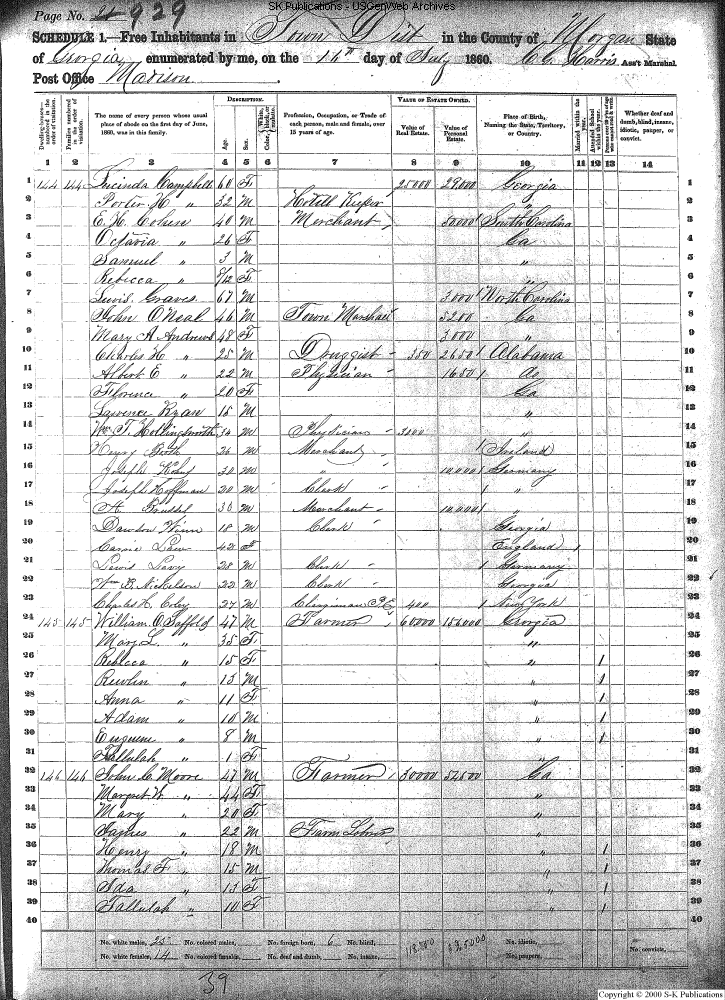 SK Publications - USGenWeb Archives
Page No. 929
SCHEDULE 1.—Free Inhabitants in Town Dist in the County of Morgan State
of Georgia enumerated by me, on the 14th day of July 1860. Harris Ass't Marshal.
Post Office Madison
Dwelling-houses—numbered in the order of visitation.
Families numbered in the order of visitation.
The name of every person whose usual place of abode on the first day of June, 1860, was in this family.
DESCRIPTION.
Age.
Sex.
Color, White, black, or mulatto.
Profession, Occupation, or Trade of each person, male and female, over 15 years of age.
VALUE OF ESTATE OWNED.
Value of Real Estate.
Value of Personal Estate.
Place of Birth, Naming the State, Territory, or Country.
Married within the year.
Attended School within the year.
Whether deaf and dumb, blind, insane, idiotic, pauper, or convict.
1 2 3 4 5 6 7 8 9 10 11 12 13 14
1 144 144 Lucinda Campbell 60 F 25000 29000 Georgia 1
2 Porter H " 32 M Hotell Keeper " 2
3 E. H. Cohen 40 M Merchant 50000 South Carolina 3
4 Octavia " 26 F Ga 4
5 Samuel " 3 M " 5
6 Rebecca " 8/12 F " 6
7 Lewis Graves 67 M 3000 North Carolina 7
8 John ONeal 46 M Town Marshall 5200 Ga 8
9 Mary A Andrews 48 F 3000 " 9
10 Charles H " 25 M Druggist 350 2650 Alabama 10
11 Albert E " 22 M Physician 1650 Do 11
12 Florence " 20 F Ga 12
13 Lawrence Ryan 15 M " 13
14 Wm T. Hollingsworth 34 M Physician 3000 " 14
15 Henry 26 M Merchant Ireland 15
16 Joseph 30 M 10,000 Germany 16
17 Joseph Hoffman 20 M Clerk " 17
18 30 M Merchant 10,000 " 18
19 Dawson Winn 18 M Clerk Georgia 19
20 Carrie Law 42 F England 20
21 Lewis Levy 28 M Clerk Germany 21
22 Wm B. Nickelson 22 M Clerk Georgia 22
23 Charles H. 27 M Clergiman 400 New York 23
24 145 145 William O Saffold 47 M Farmer 60000 156000 Georgia 24
25 Mary L. " 35 F " 25
26 Rebecca " 15 F " 1 26
27 " 13 M " 1 27
28 Anna " 11 F " 1 28
29 Adam " 10 M " 1 29
30 Eugene " 8 M " 1 30
31 Tallulah " 1 F " 31
32 146 146 John C Moore 47 M Farmer 30000 52500 Ga 32
33 Margret W " 44 F " 33
34 Mary " 20 F " 34
35 James " 22 M Farm 35
36 Henry " 18 M " 1 36
37 Thomas F " 15 M " 1 37
38 Ida " 13 F " 1 38
39 Tallulah " 10 F " 1 39
40 40
No. white males, 25 No. colored males, No. foreign born, 6 No. blind, No. idiotic,
No. white females, 14 No. colored females, No. deaf and dumb, No. insane, No. paupers, No. convicts,
39
Copyright © 2000 S-K Publications